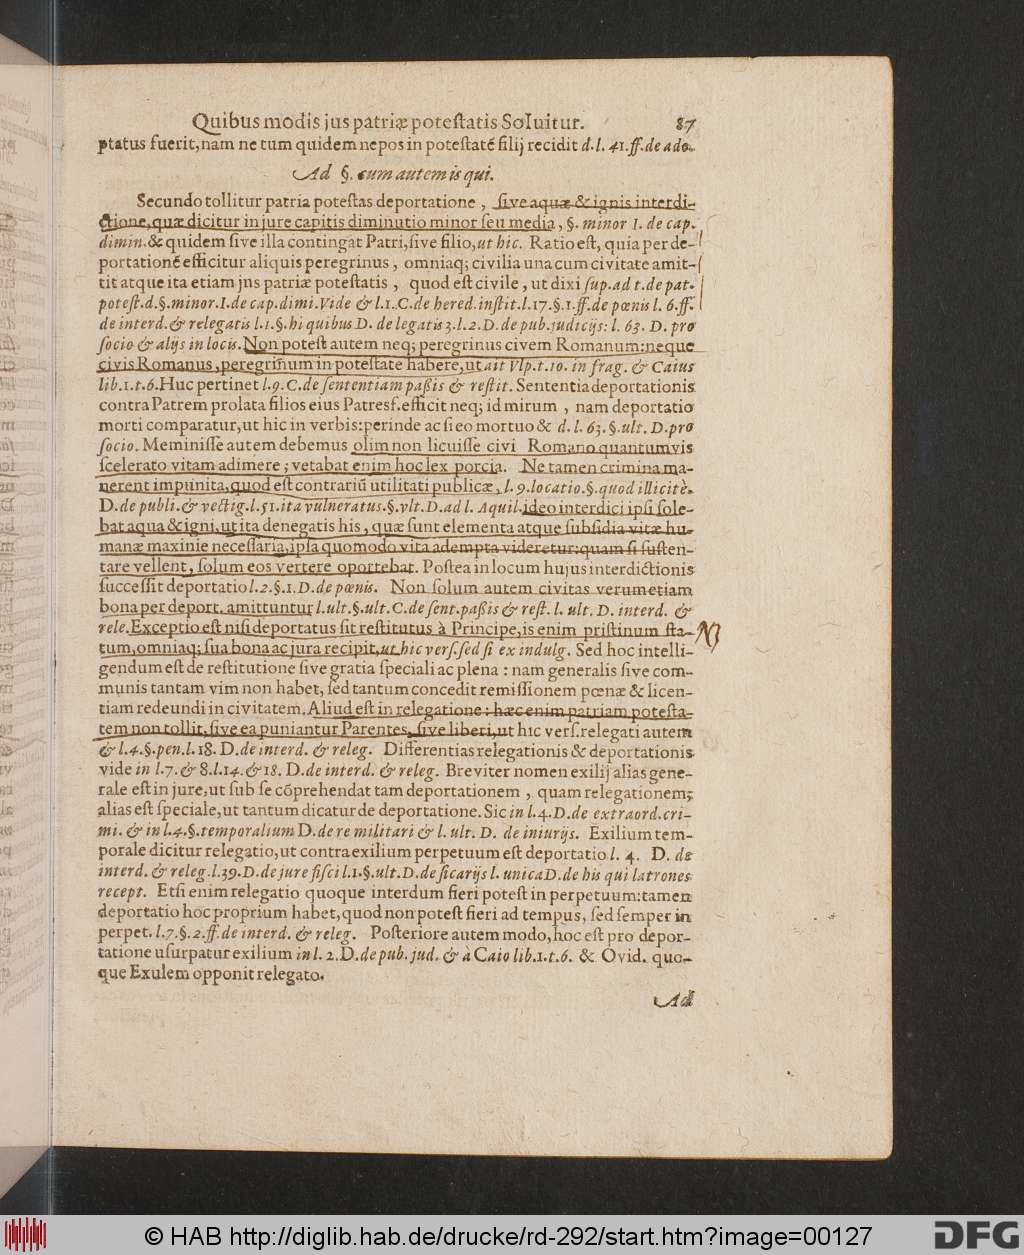 Quibus modis jus patriæ potestatis Soluitur. 87
ptatus fuerit, nam ne tum quidem nepos in potestatẽ filij recidit d. l. 41. ff. de ado.
Ad §. cum autem is qui.
Secundo tollitur patria potestas deportatione, sive aquæ & ignis interdi-
ctione, quæ dicitur in jure capitis diminutio minor seu media, §. minor I. de cap.
dimin. & quidem sive illa contingat Patri, sive filio, ut hic. Ratio est, quia per de-
portationẽ efficitur aliquis peregrinus, omniaq; civilia una cum civitate amit-
tit atque ita etiam jns patriæ potestatis, quod est civile, ut dixi sup. ad t. de pat.
potest. d. §. minor. I. de cap. dimi. Vide & l. 1. C. de hered. instit. l. 17. §. 1. ff. de pœnis l. 6. ff.
de interd. & relegatis l. 1. §. hi quibus D. de legatis 3. l. 2. D. de pub. judicijs: l. 63. D. pro
socio & alijs in locis. Non potest autem neq; peregrinus civem Romanum: neque
civis Romanus, peregrinum in potestate habere, ut ait Vlp. t. 10. in frag. & Caius
lib. 1. t. 6. Huc pertinet l. 9. C. de sententiam paßis & restit. Sententia deportationis
contra Patrem prolata filios eius Patresf. efficit neq; id mirum, nam deportatio
morti comparatur, ut hic in verbis: perinde ac si eo mortuo & d. l. 63. §. ult. D. pro
socio. Meminisse autem debemus olim non licuisse civi Romano quantumvis
scelerato vitam adimere; vetabat enim hoc lex porcia. Ne tamen crimina ma-
nerent impunita, quod est contrariũ utilitati publicæ, l. 9. locatio. §. quod illicitè.
D. de publi. & vectig. l. 51. ita vulneratus. §. vlt. D. ad l. Aquil. ideo interdici ipsi sole-
bat aqua & igni, ut ita denegatis his, quæ sunt elementa atque subsidia vitæ hu-
manæ maxinie necessaria, ipsa quomodo vita adempta videretur: quam si susten-
tare vellent, solum eos vertere oportebat. Postea in locum hujus interdictionis
successit deportatio l. 2. §. 1. D. de pœnis. Non solum autem civitas verum etiam
bona per deport. amittuntur l. ult. §. ult. C. de sent. paßis & rest. l. ult. D. interd. &
rele. Exceptio est nisi deportatus sit restitutus à Principe, is enim pristinum sta-
tum, omniaq; sua bona ac jura recipit, ut hic vers. sed si ex indulg. Sed hoc intelli-
gendum est de restitutione sive gratia speciali ac plena: nam generalis sive com-
munis tantam vim non habet, sed tantum concedit remissionem pœnæ & licen-
tiam redeundi in civitatem. Aliud est in relegatione: hæc enim patriam potesta-
tem non tollit, sive ea puniantur Parentes, sive liberi, ut hic vers. relegati autem
& l. 4. §. pen. l. 18. D. de interd. & releg. Differentias relegationis & deportationis
vide in l. 7. & 8. l. 14. & 18. D. de interd. & releg. Breviter nomen exilij alias gene-
rale est in jure, ut sub se cõprehendat tam deportationem, quam relegationem;
alias est speciale, ut tantum dicatur de deportatione. Sic in l. 4. D. de extraord. cri-
mi. & in l. 4. §. temporalium D. de re militari & l. ult. D. de iniurijs. Exilium tem-
porale dicitur relegatio, ut contra exilium perpetuum est deportatio l. 4. D. de
interd. & releg. l. 39. D. de jure fisci l. 1. §. ult. D. de sicarijs l. unica D. de his qui latrones
recept. Etsi enim relegatio quoque interdum fieri potest in perpetuum: tamen
deportatio hoc proprium habet, quod non potest fieri ad tempus, sed semper in
perpet. l. 7. §. 2. ff. de interd. & releg. Posteriore autem modo, hoc est pro depor-
tatione usurpatur exilium in l. 2. D. de pub. jud. & à Caio lib. 1. t. 6. & Ovid. quo-
que Exulem opponit relegato.
Ad
© HAB http://diglib.hab.de/drucke/rd-292/start.htm?image=00127
DFG